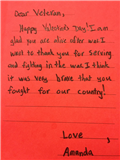 Dear Veteran,
Happy Valentines Day! I am
glad you are alive after war. I
want to thank you for serving
and fighting in the war. I think
it was very brave that you
fought for our country!
Love,
Amanda